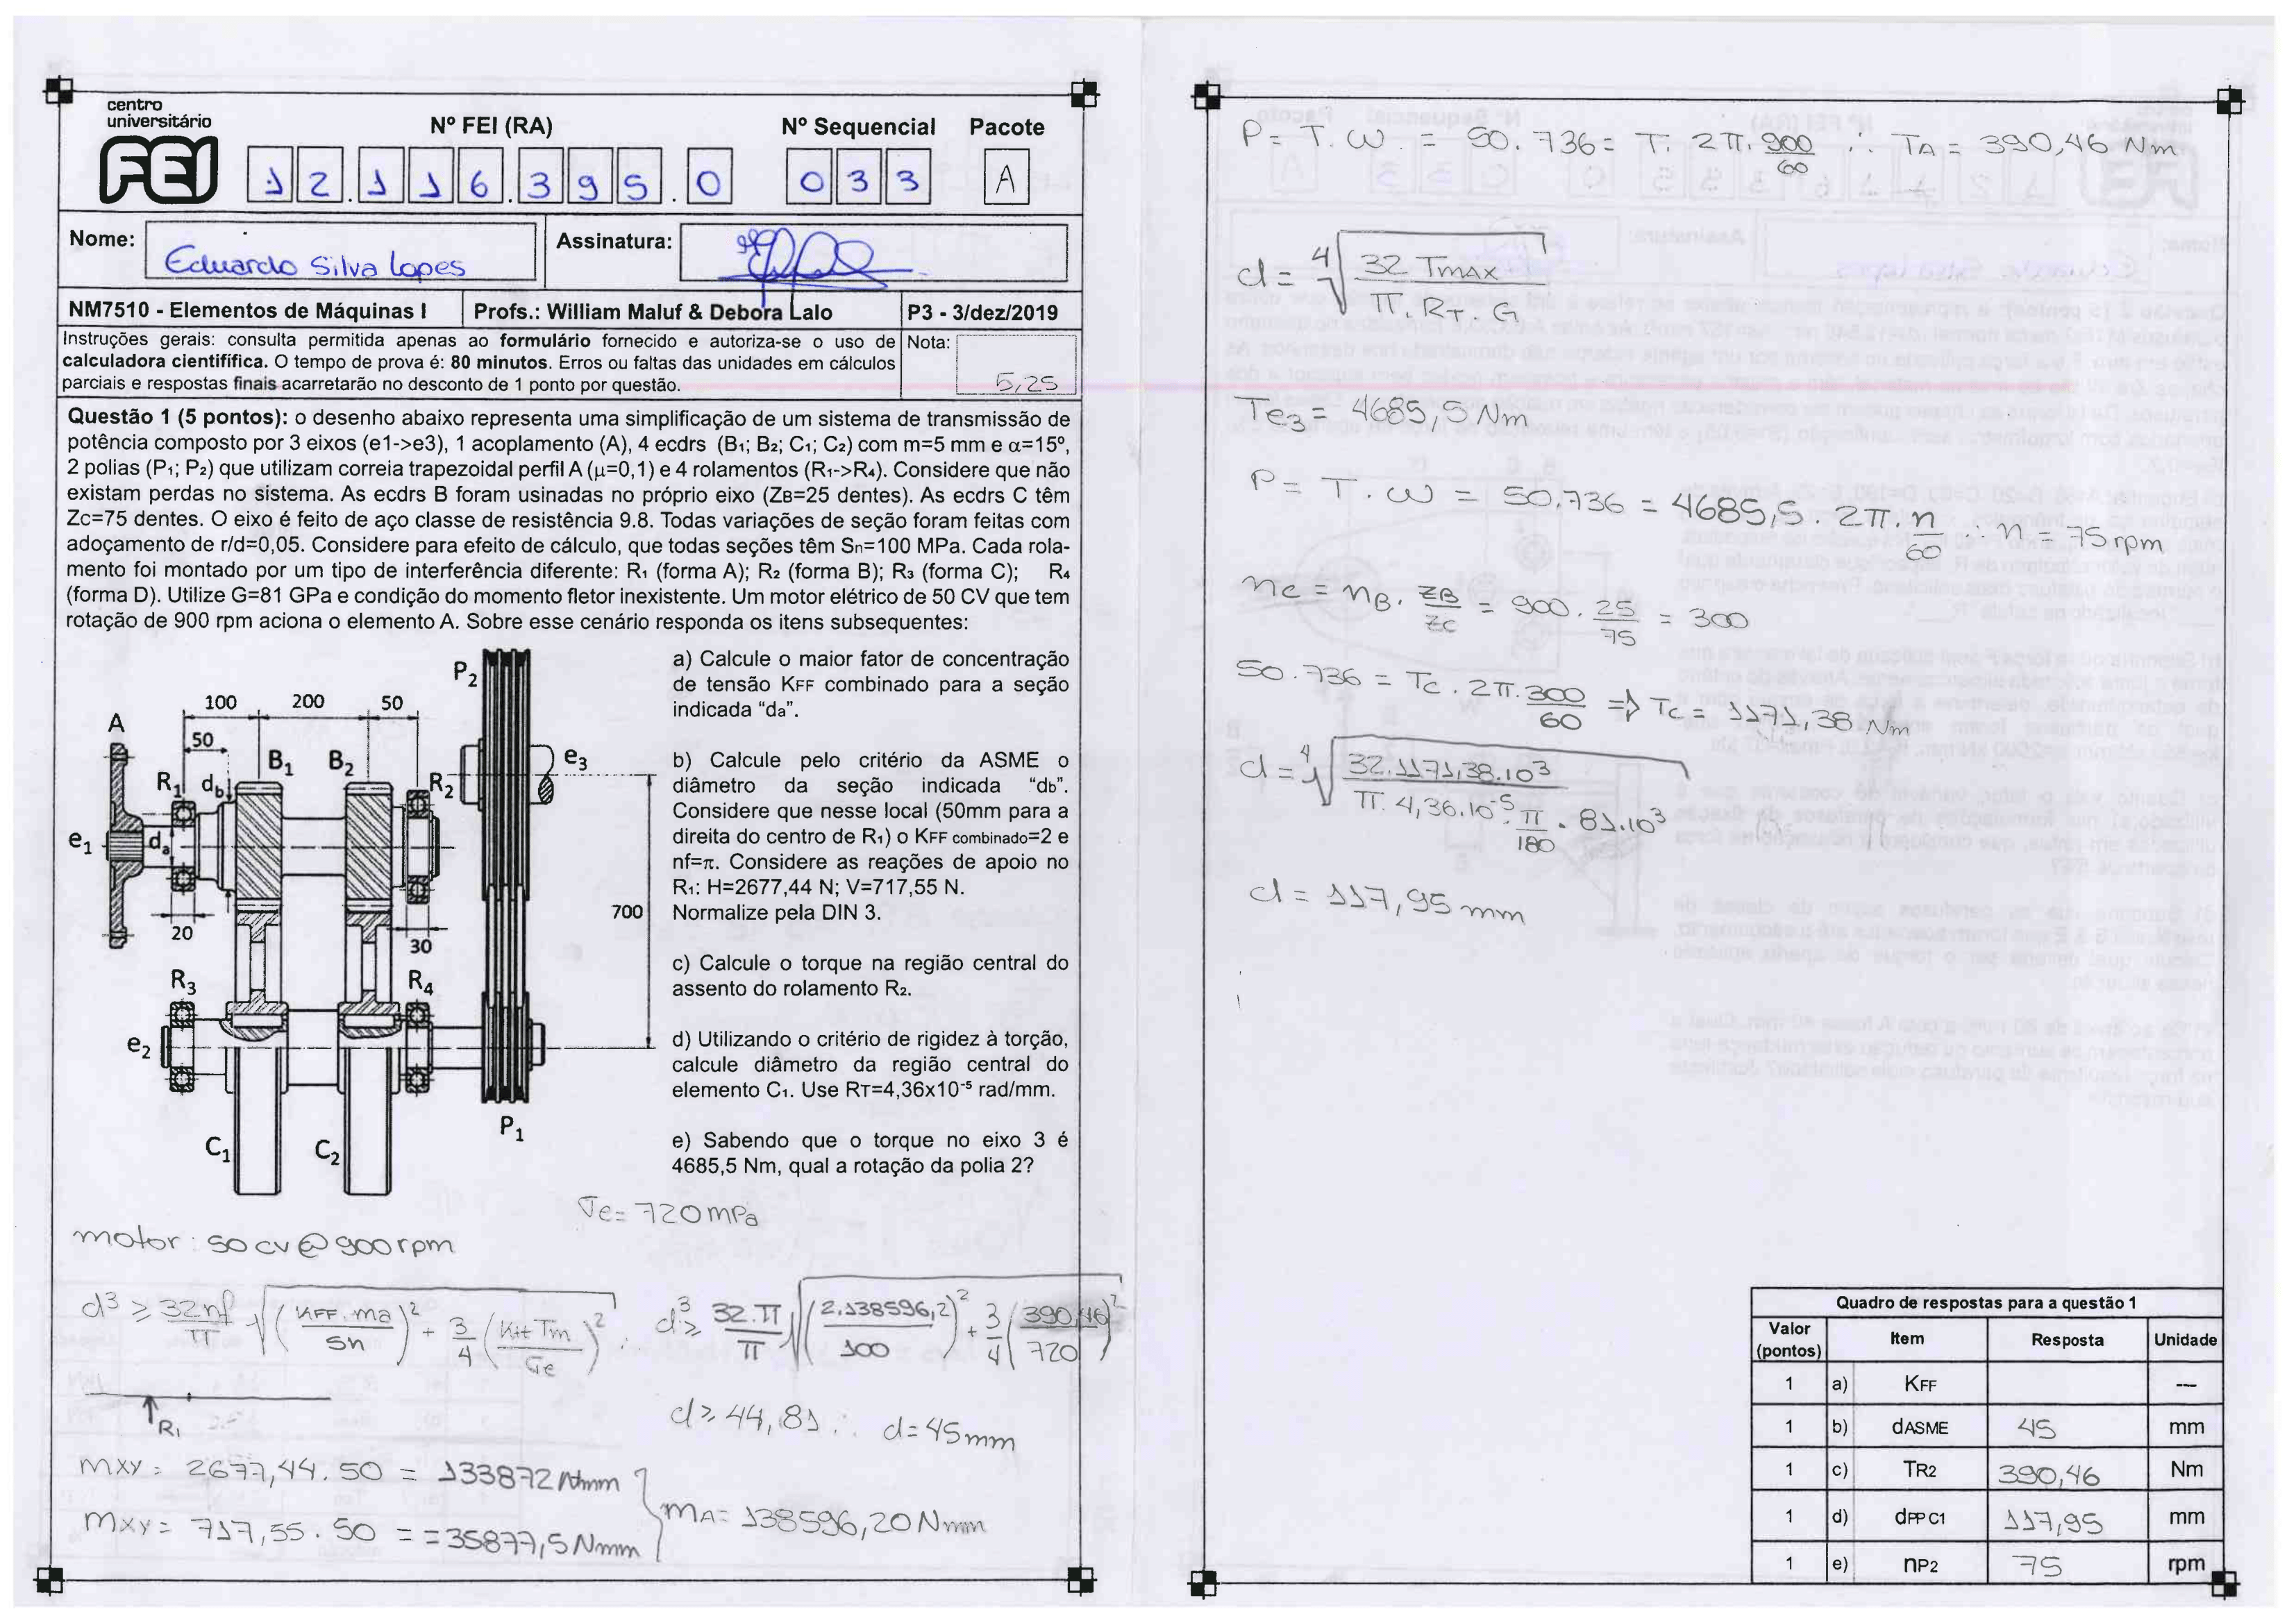 centro
universitário
FEI
Nº FEI (RA)
Nº Sequencial
Pacote
12.116.395.0
033
A
Nome:
Eduardo Silva Lopes
Assinatura:
NM7510 - Elementos de Máquinas I
Profs.: William Maluf & Debora Lalo
P3 - 3/dez/2019
Instruções gerais: consulta permitida apenas ao formulário fornecido e autoriza-se o uso de
calculadora cientifífica. O tempo de prova é: 80 minutos. Erros ou faltas das unidades em cálculos
parciais e respostas finais acarretarão no desconto de 1 ponto por questão.
Nota:
5,25
Questão 1 (5 pontos): o desenho abaixo representa uma simplificação de um sistema de transmissão de
potência composto por 3 eixos (e1->e3), 1 acoplamento (A), 4 ecdrs (B₁; B₂; C₁; C₂) com m=5 mm e α=15º,
2 polias (P₁; P₂) que utilizam correia trapezoidal perfil A (μ=0,1) e 4 rolamentos (R₁->R₄). Considere que não
existam perdas no sistema. As ecdrs B foram usinadas no próprio eixo (ZB=25 dentes). As ecdrs C têm
Zc=75 dentes. O eixo é feito de aço classe de resistência 9.8. Todas variações de seção foram feitas com
adoçamento de r/d=0,05. Considere para efeito de cálculo, que todas seções têm Sn=100 MPa. Cada rola-
mento foi montado por um tipo de interferência diferente: R₁ (forma A); R₂ (forma B); R₃ (forma C); R₄
(forma D). Utilize G=81 GPa e condição do momento fletor inexistente. Um motor elétrico de 50 CV que tem
rotação de 900 rpm aciona o elemento A. Sobre esse cenário responda os itens subsequentes:
a) Calcule o maior fator de concentração
de tensão KFF combinado para a seção
indicada “da”.
b) Calcule pelo critério da ASME o
diâmetro da seção indicada “db”.
Considere que nesse local (50mm para a
direita do centro de R₁) o KFF combinado=2 e
nf=π. Considere as reações de apoio no
R₁: H=2677,44 N; V=717,55 N.
Normalize pela DIN 3.
c) Calcule o torque na região central do
assento do rolamento R₂.
d) Utilizando o critério de rigidez à torção,
calcule diâmetro da região central do
elemento C₁. Use RT=4,36x10⁻⁵ rad/mm.
e) Sabendo que o torque no eixo 3 é
4685,5 Nm, qual a rotação da polia 2?
P₂
100
200
50
A
50
B₁
B₂
e₃
R₁
db
R₂
e₁
da
20
30
700
R₃
R₄
e₂
P₁
C₁
C₂
σe= 720 mPa
motor: 50 cv @ 900 rpm
d³ ≥ 32nf/π √((KFF.ma/Sn)² + 3/4 (Kft Tm/σe)²) ∴ d³ ≥ 32.π/π √((2.138596,2/100)² + 3/4 (390,46/720)²)
R₁
d ≥ 44,81 ∴ d=45mm
mxy = 2677,44.50 = 133872 Nmm
mxy = 717,55.50 = =35877,5 Nmm
mA= 138596,20 Nmm
P= T.ω. = 50.736= T. 2π.900/60 ∴ TA = 390,46 Nm
d= ⁴√(32 Tmax/π.RT.G)
Te₃ = 4685,5 Nm
P= T.ω = 50.736 = 4685,5.2π.n/60 ∴ n = 75 rpm
nc = nB. ZB/Zc = 900. 25/75 = 300
50.736 = Tc.2π.300/60 => Tc = 1171,38 Nm
d= ⁴√(32.1171,38.10³/π.4,36.10⁻⁵.π/180.81.10³)
d= 117,95 mm
Quadro de respostas para a questão 1
Valor (pontos) Item Resposta Unidade
1 a) KFF ---
1 b) dASME 45 mm
1 c) TR2 390,46 Nm
1 d) dPP C1 117,95 mm
1 e) nP2 75 rpm